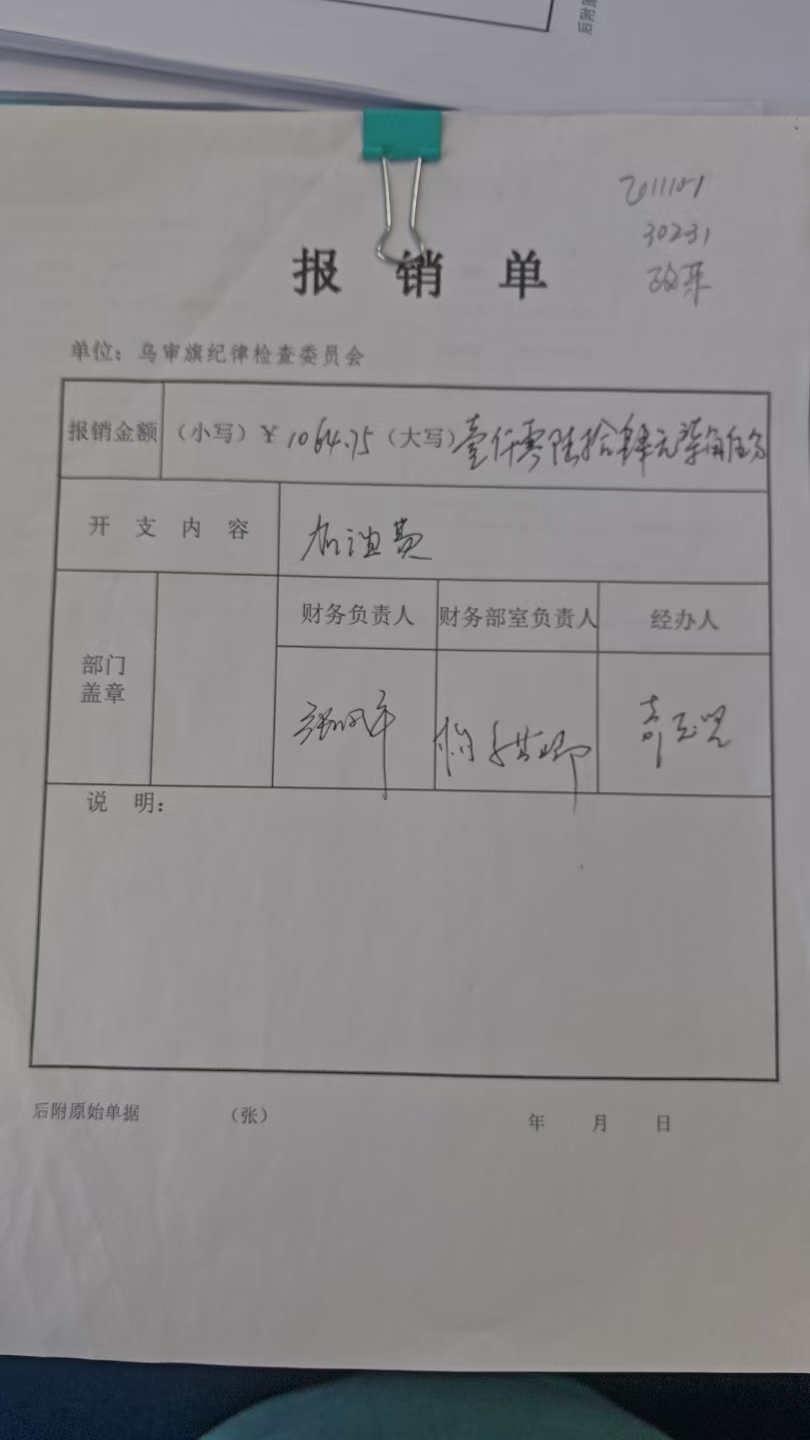 后附
2011101
30231
报销单
单位：乌审旗纪律检查委员会
报销金额 （小写）￥1064.75（大写）壹仟零陆拾肆元柒角伍分
开支内容 加油费
财务负责人 财务部室负责人 经办人
部门
盖章
说 明：
后附原始单据 （张） 年 月 日